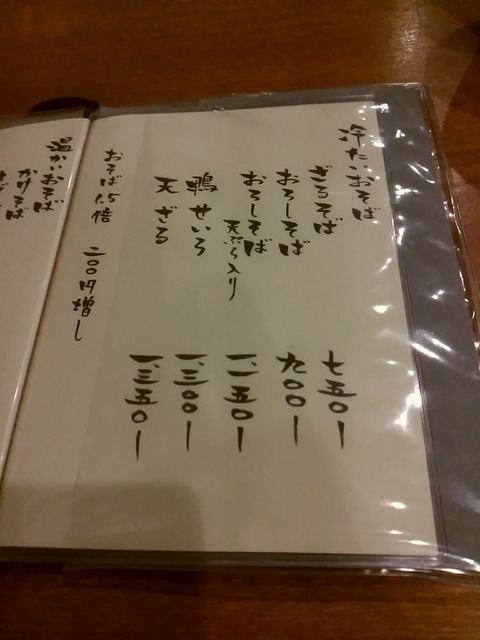 冷たいおそば
ざるそば 七五〇ー
おろしそば 九〇〇ー
おろしそば 天ぷら入り 一、一五〇ー
鴨せいろ 一、三〇〇ー
天ざる 一、三五〇ー
おそば1.5倍 二〇〇円増し
温かいおそば
かけそば